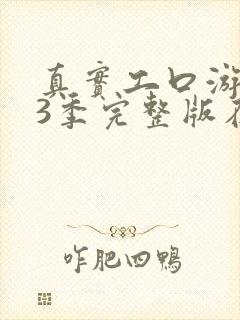 真實工口游
3季完整版在
咋肥四鴨